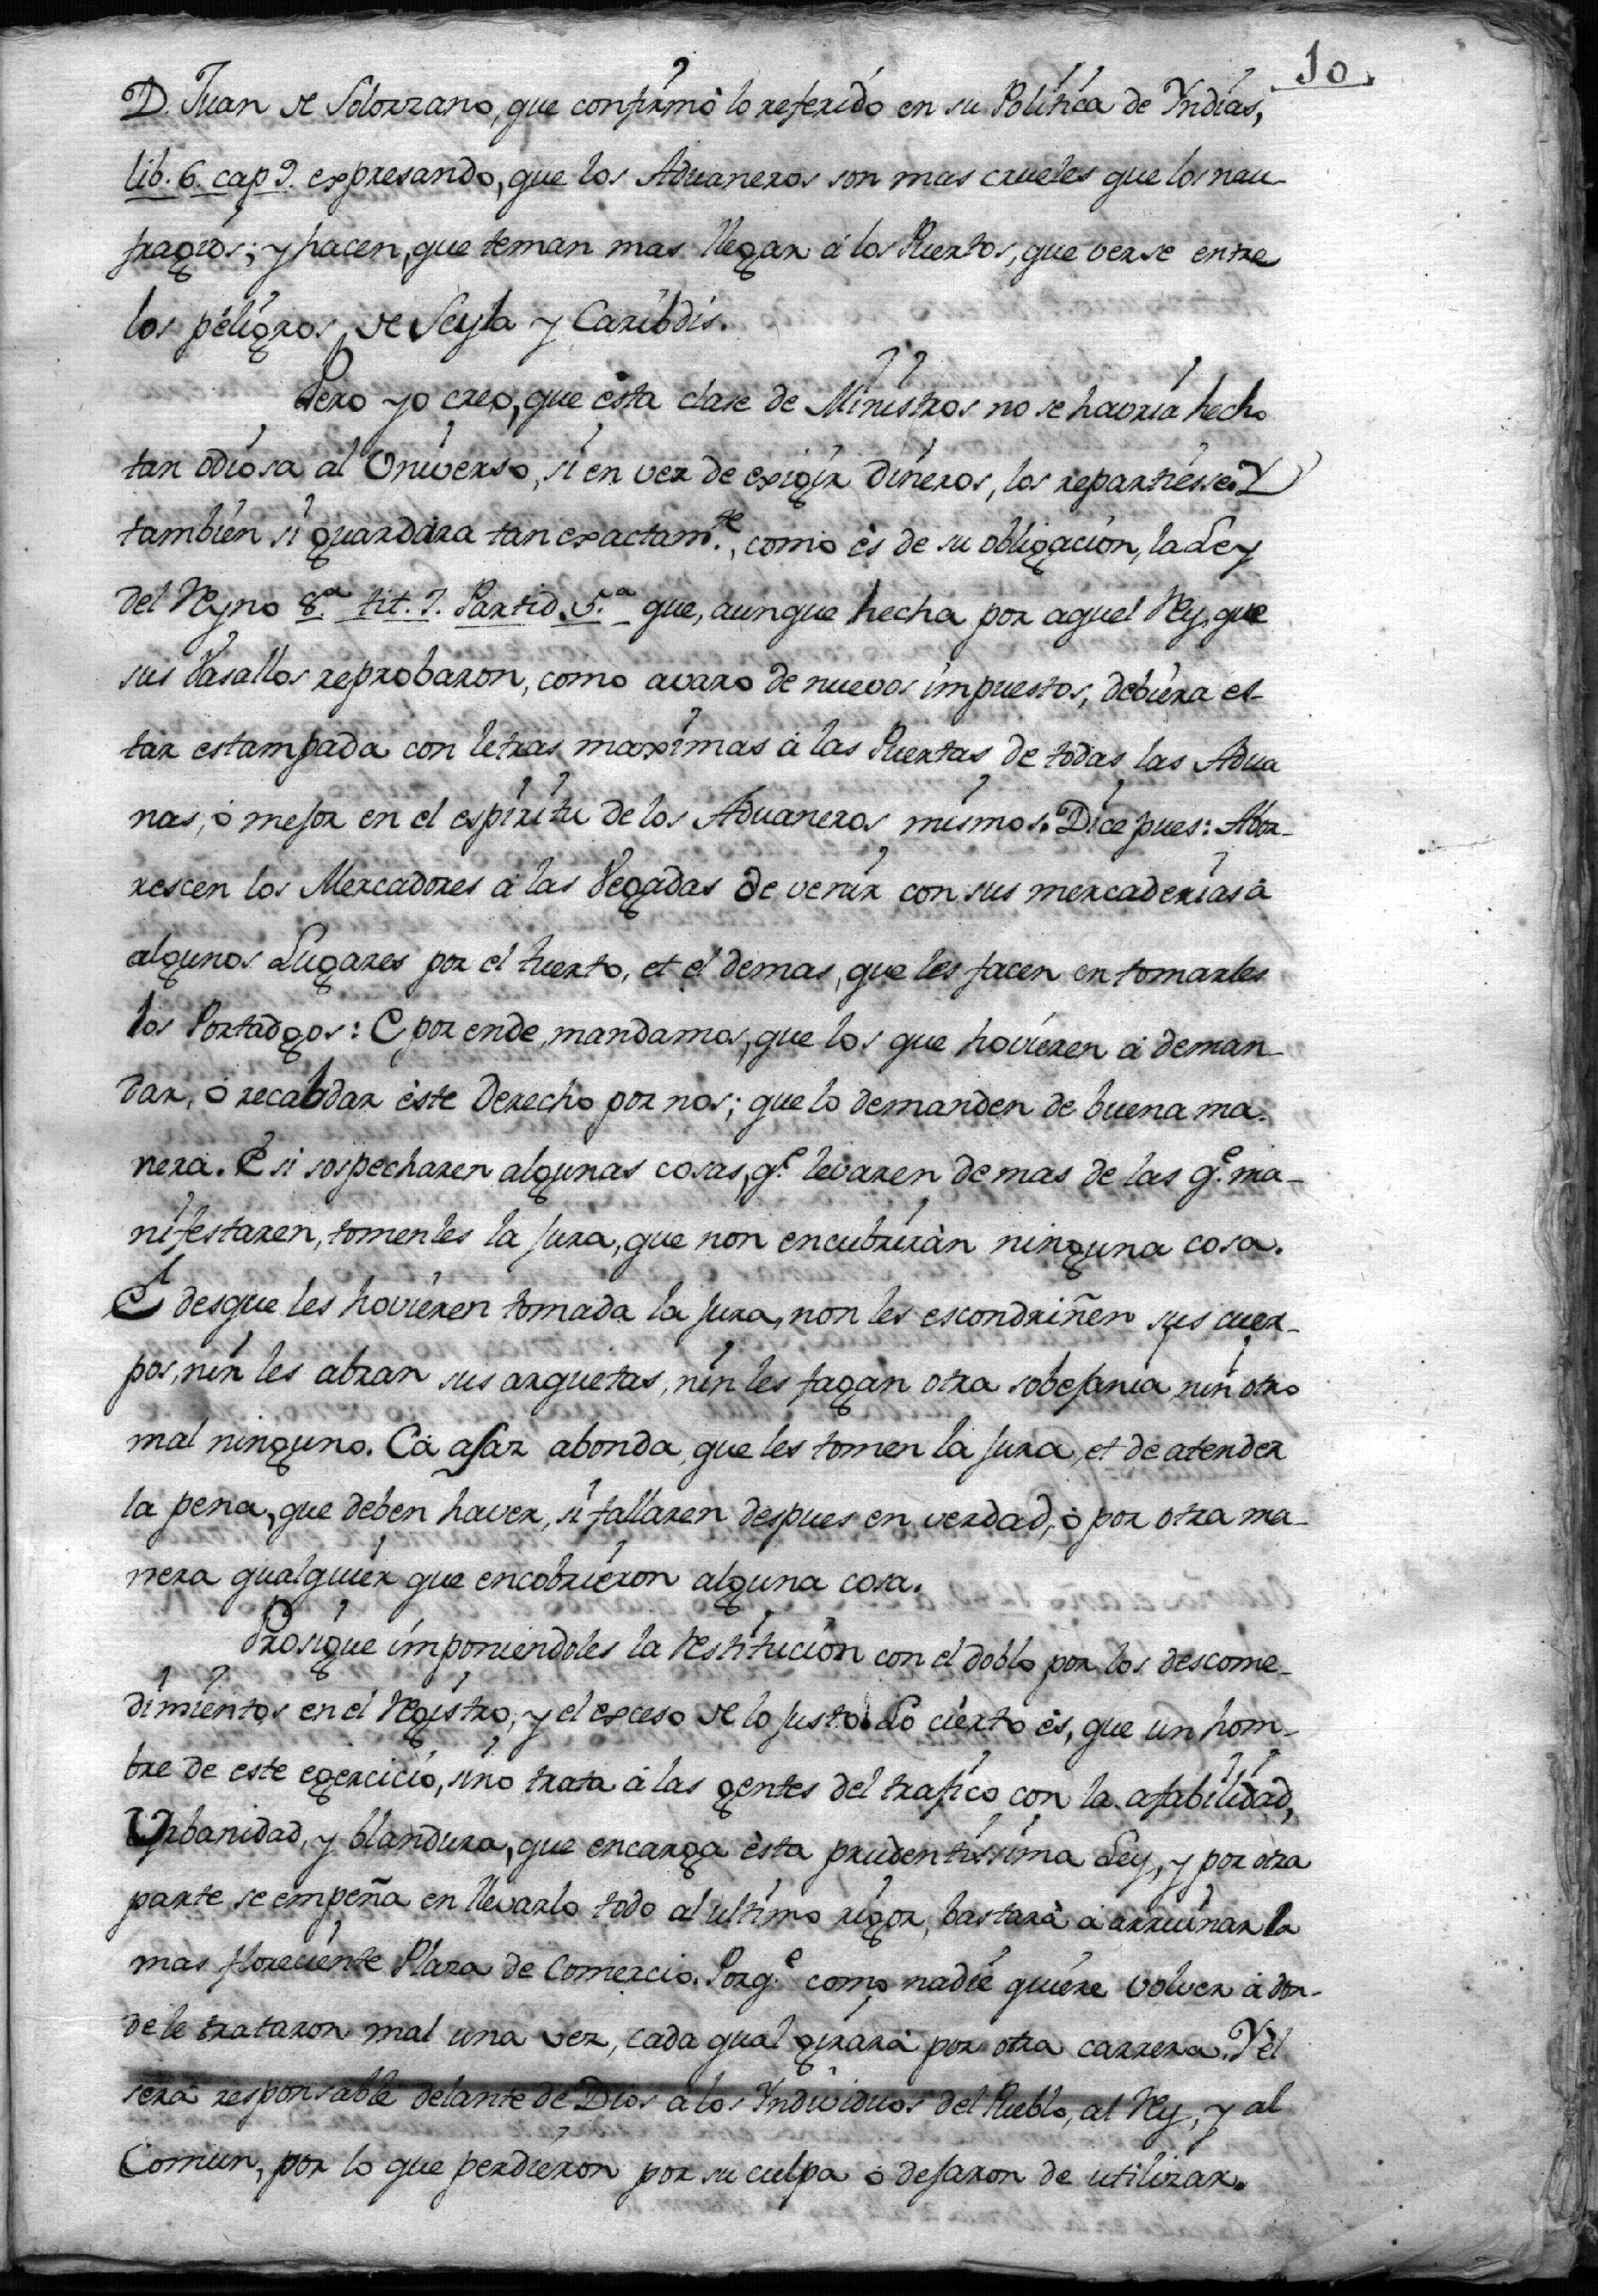 10.
D. Juan de Solorzano, que confirmò lo referido en su Politica de Yndias,
lib. 6. cap 9. expresando, que los Aduaneros son mas crueles que los nau-
fragios; y hacen, que teman mas llegar à los Puertos, que verse entre
los peligros de Scyla y Caribdis.
Pero yo creo, que èsta clase de Ministros no se havria hecho
tan odiosa al Universo, si en vez de exigir dineros, los repartiesse. Y
tambien si guardàra tan exactam.te, como ès de su obligacion, la Ley
del Reyno 8.a tit. 7. Partid. 5.a que, aunque hecha por aquel Rey, que
sus Vasallos reprobaron, como avaro de nuevos impuestos, debiera es-
tar estampada con letras maximas à las Puertas de todas las Adua
nas, ò mejor en el espiritu de los Aduaneros mismos. Dice pues: Abor-
rescen los Mercadores à las Vegadas de venir con sus mercaderias à
algunos Lugares por el tuerto, et el demas, que les facen en tomarles
los Portadgos: E por ende, mandamos, que los que hovieren à deman-
dar, ò recabdar èste Derecho por nos; que lo demanden de buena ma-
nera. E si sospecharen algunas cosas, q.e levaren demas de las q.e ma-
nifestaren, tomenles la jura, que non encubriràn ninguna cosa.
E desque les hovieren tomada la jura, non les escondriñen sus cuer-
pos, nin les abran sus arquetas, nin les fagan otra sobejania, nin otro
mal ninguno. Cà asaz abonda, que les tomen la jura, et de atender
la pena, que deben haver, si fallaren despues en verdad, ò por otra ma-
nera qualquier que encobrieron alguna cosa.
Prosigue imponiendoles la Restitucion con el doblo por los descome-
dimientos en el Registro, y el exceso de lo justo. Lo cierto ès, que un hom-
bre de este egercicio, sino trata à las gentes del trafico con la afabilidad,
Urbanidad, y blandura, que encarga èsta prudentissima Ley, y por otra
parte se empeña en llevarlo todo al ultimo rigor, bastarà à arruinar la
mas floreciente Plaza de Comercio. Porq.e como nadie quiere volver à don-
de le trataron mal una vez, cada qual girarà por otra carrera. Y èl
serà responsable delante de Dios à los Yndividuos del Pueblo, al Rey, y al
Comun, por lo que perdieron por su culpa ò dejaron de utilizar.